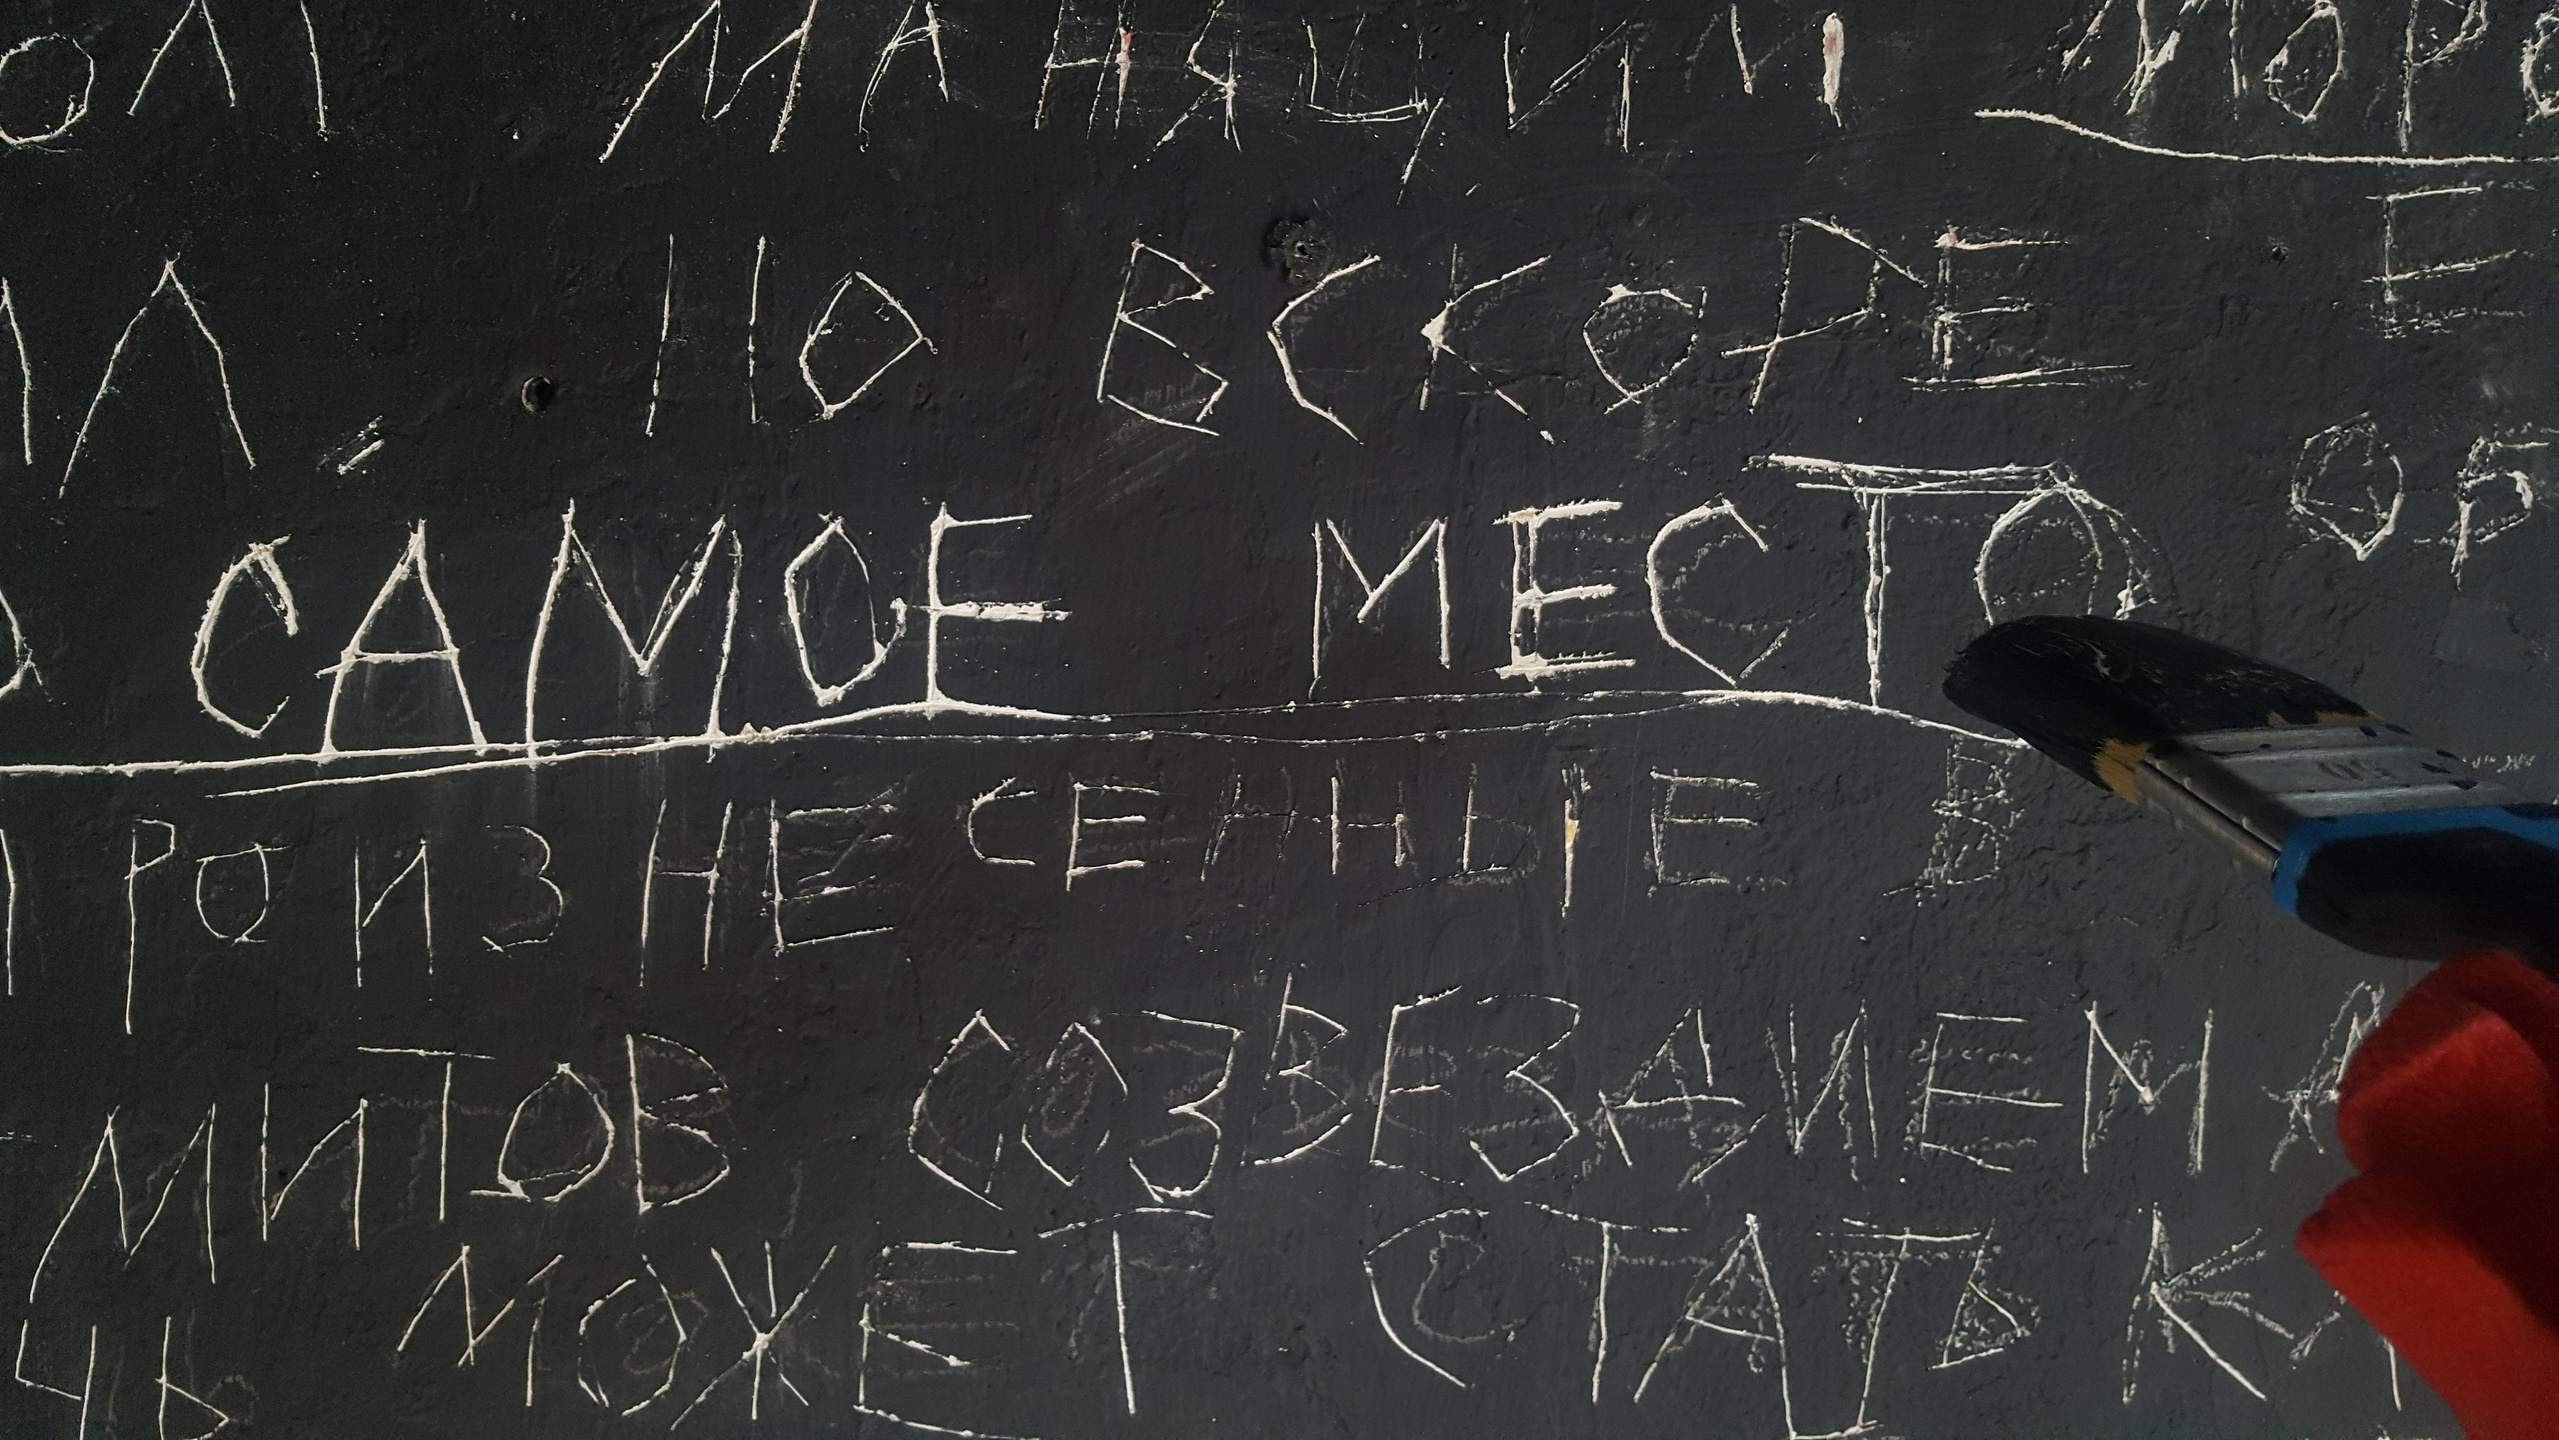 МАНЯЩИМ МОРО
НО ВСКОРЕ Е
САМОЕ МЕСТО ОБ
ПРОИЗНЕСЕННЫЕ В
МИТОВ, СОЗВЕЗДИЕМ
ЧЬ МОЖЕТ СТАТЬ К